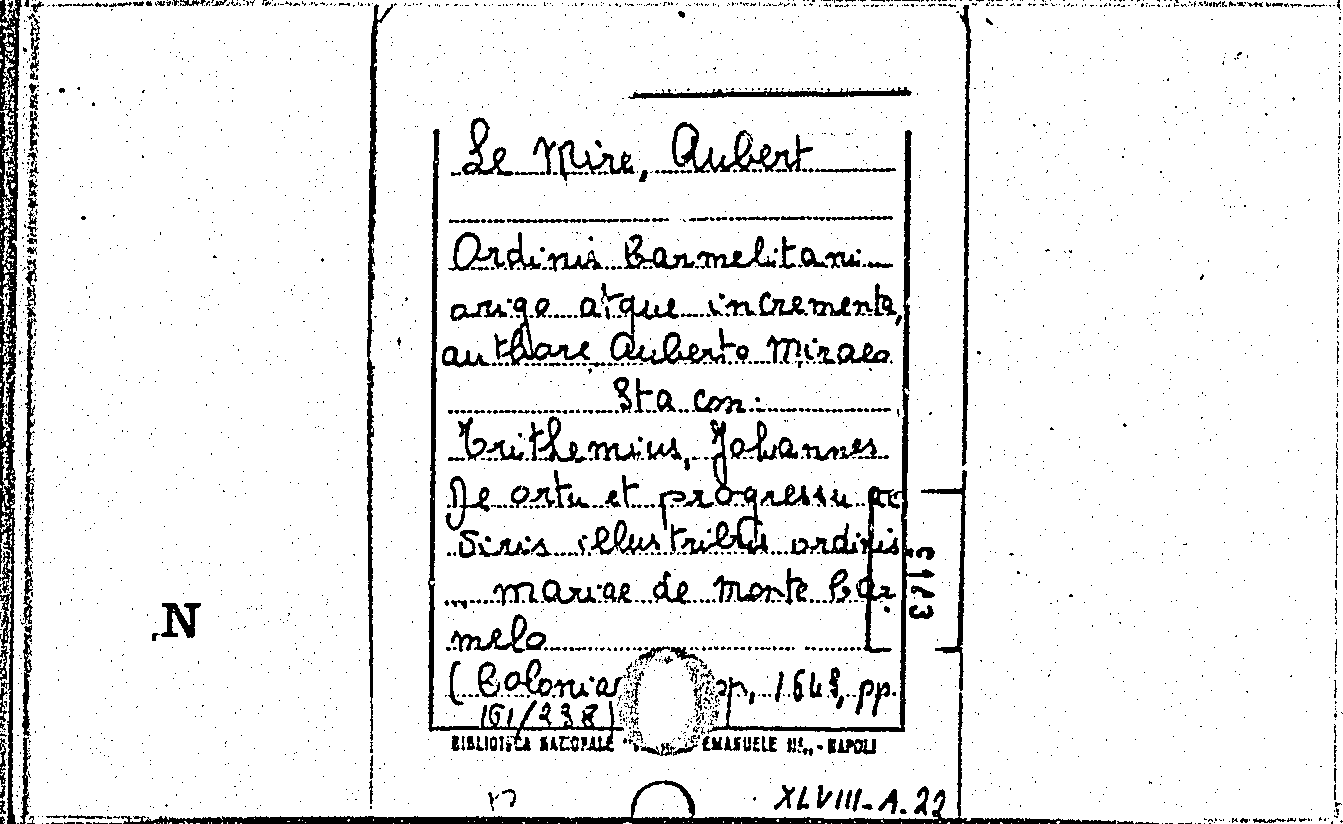 Le Mire, Aubert
Ordinis Carmelitani
origo atque incrementa,
authore Auberto Miraeo
Sta con:
Trithemius, Johannes
De ortu et progressu ac
Viris illustribus ordinis
... mariae de monte Car-
melo
(Coloniae 1643, pp.
161/238)
BIBLIOTECA NAZIONALE " EMANUELE III,, - NAPOLI
XLVIII-A.22
N